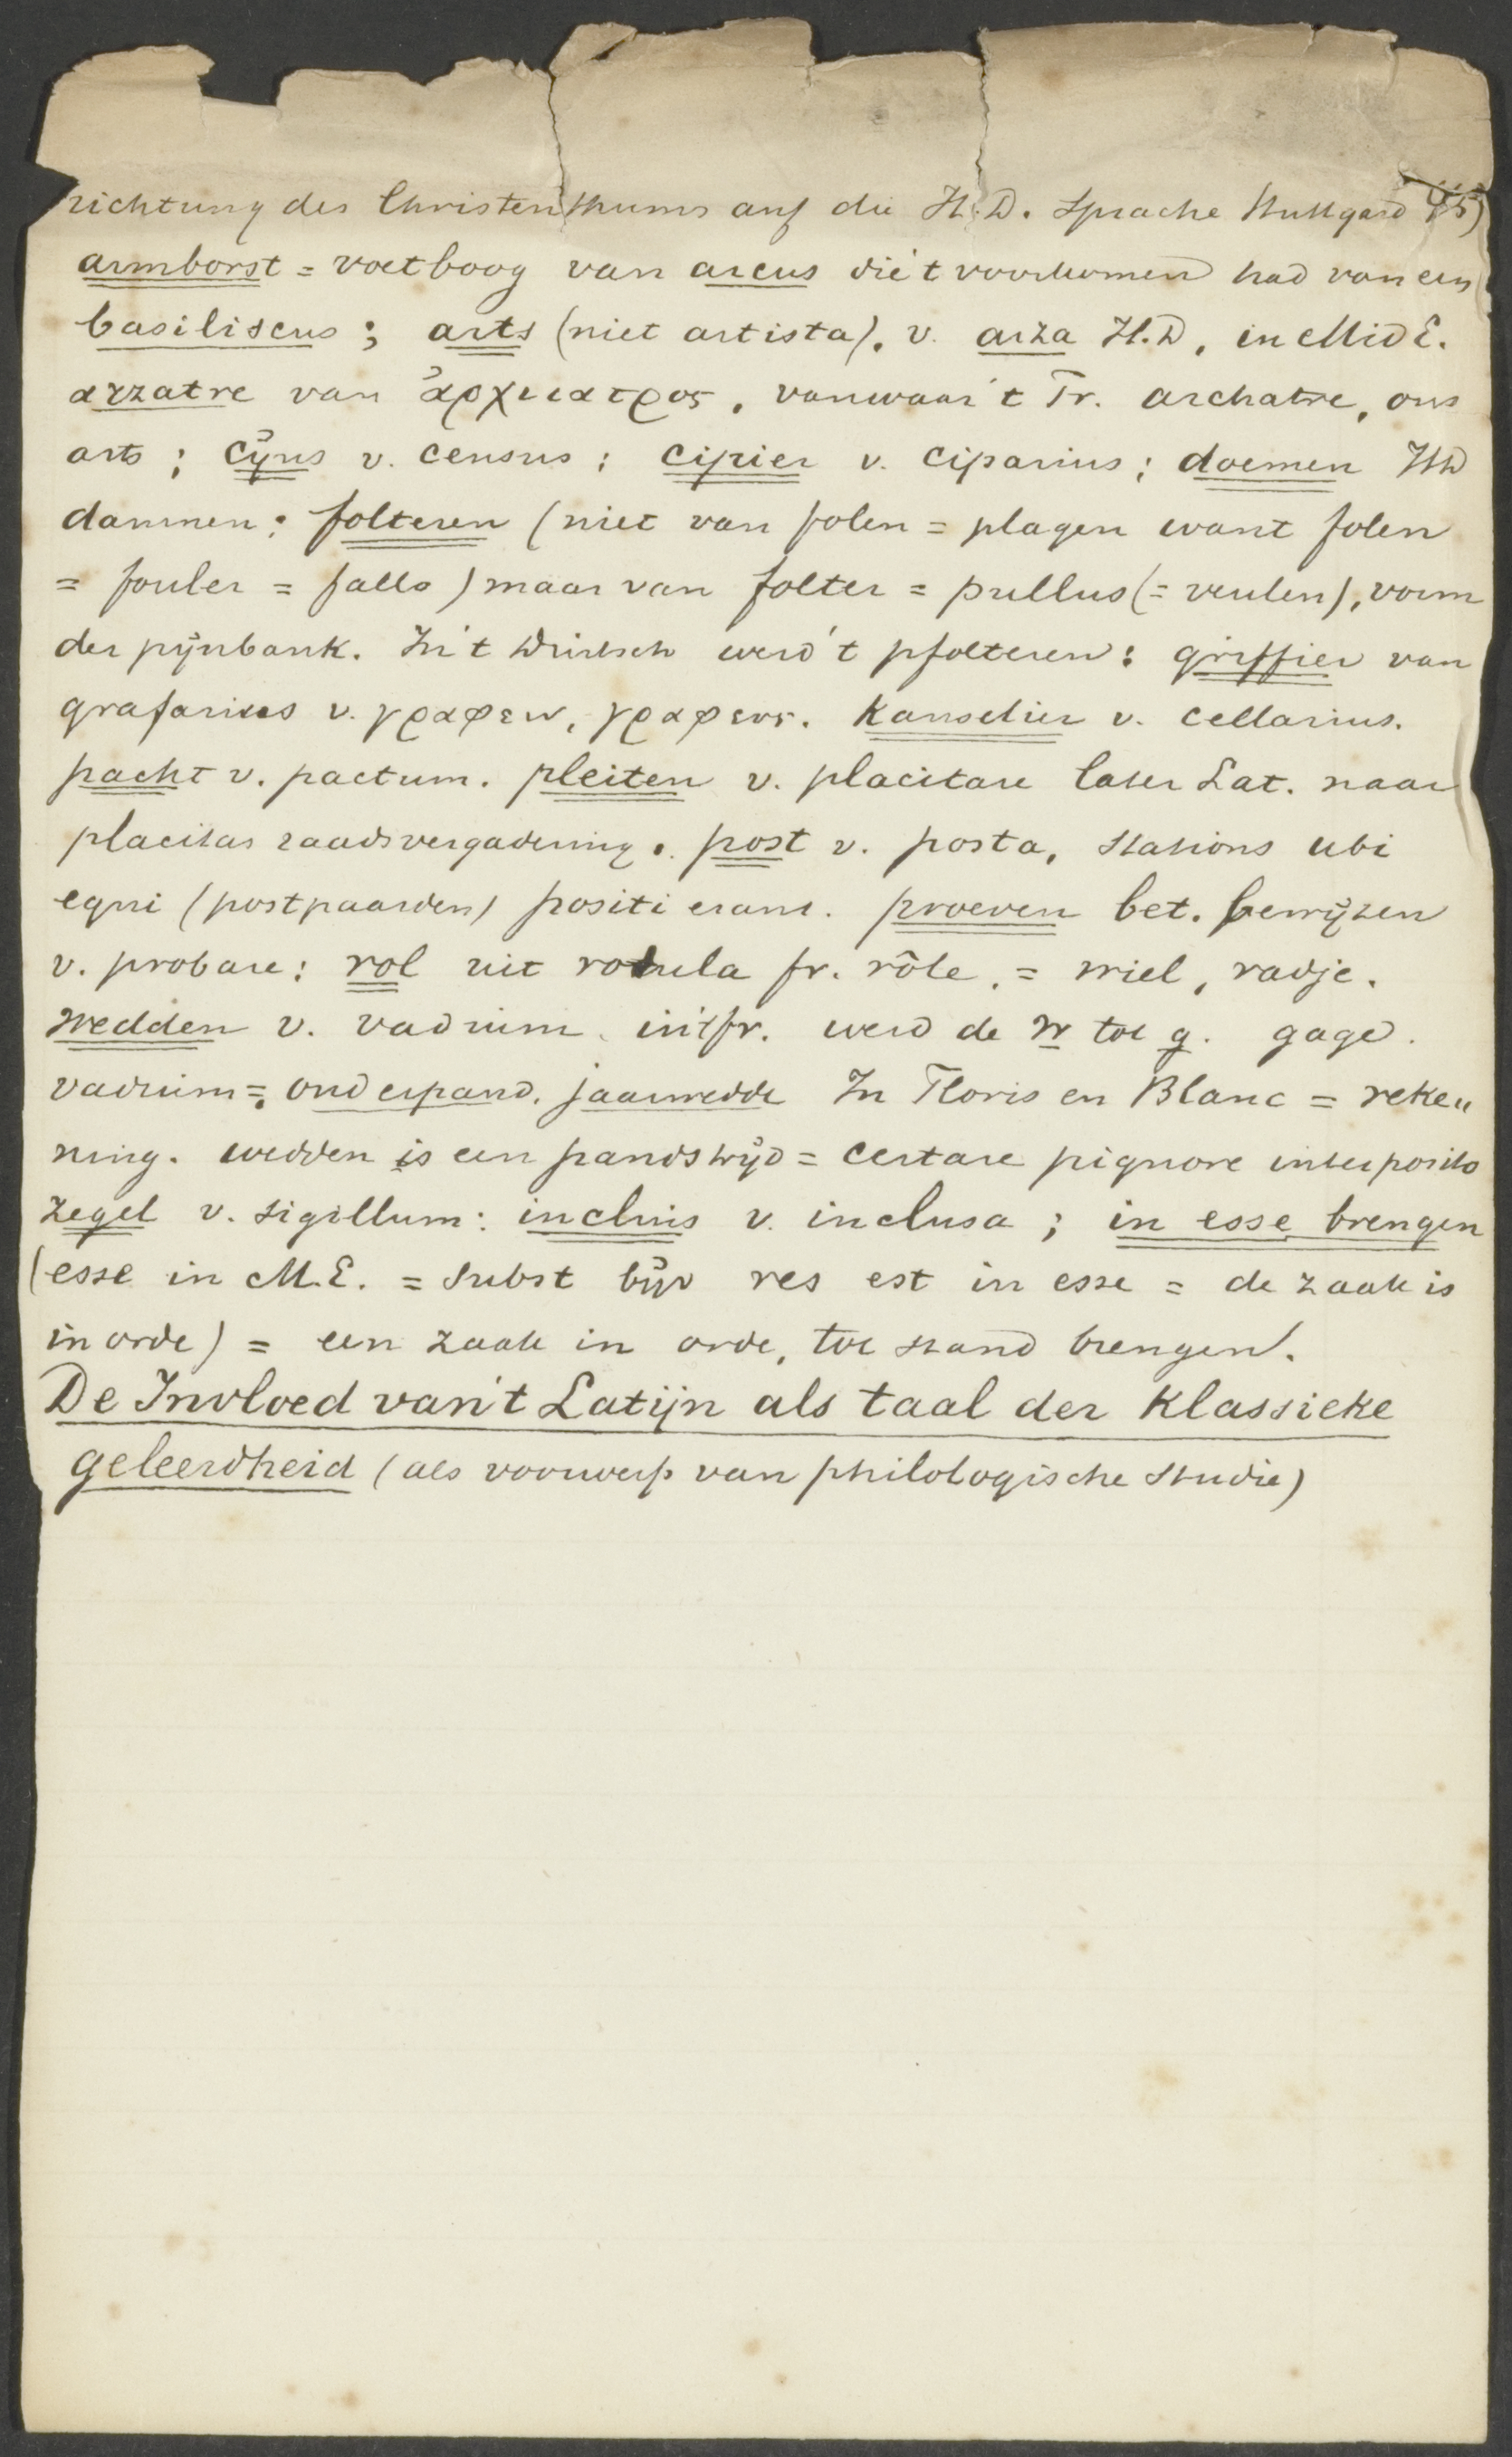 richtung des Christenthums auf die H.D. Sprache Stuttgard 45)
armborst = voetboog van arcus die 't voorkomen had van een
basiliscus ; arts (niet artista). v. arza H.D, in Mid E.
arzatre van ἀρχιιατρος, vanwaar 't Fr. archatre, ons
arts ; cijns v. census ; cipier v. ciparius ; doemen HD
dammen ; folteren (niet van folen = plagen want folen
= fouler = fallo) maar van folter = pullus (= veulen), vorm
der pijnbank. In 't Duitsch werd 't pfolteren : griffier van
grafarius v. γραφειν, γραφευς. Kanselier v. cellarius.
pacht v. pactum. pleiten v. placitare later Lat. naar
placitas raadsvergadering. post v. posta, stations ubi
equi (postpaarden) positi erant. proeven bet. bewijzen
v. probare : rol uit rotula fr. rôle, = wiel, radje.
wedden v. vadium in 't fr. werd de w tot g. gage.
vadium = onderpand. jaarwedde In Floris en Blanc = reke„
ning. wedden is een pandstrijd = certare pignore interposito
zegel v. sigillum : incluis v. inclusa ; in esse brengen
(esse in M.E. = subst bijv res est in esse = de zaak is
in orde) = een zaak in orde, tot stand brengen.
De Invloed van 't Latijn als taal der Klassieke
geleerdheid (als voorwerp van philologische studie)